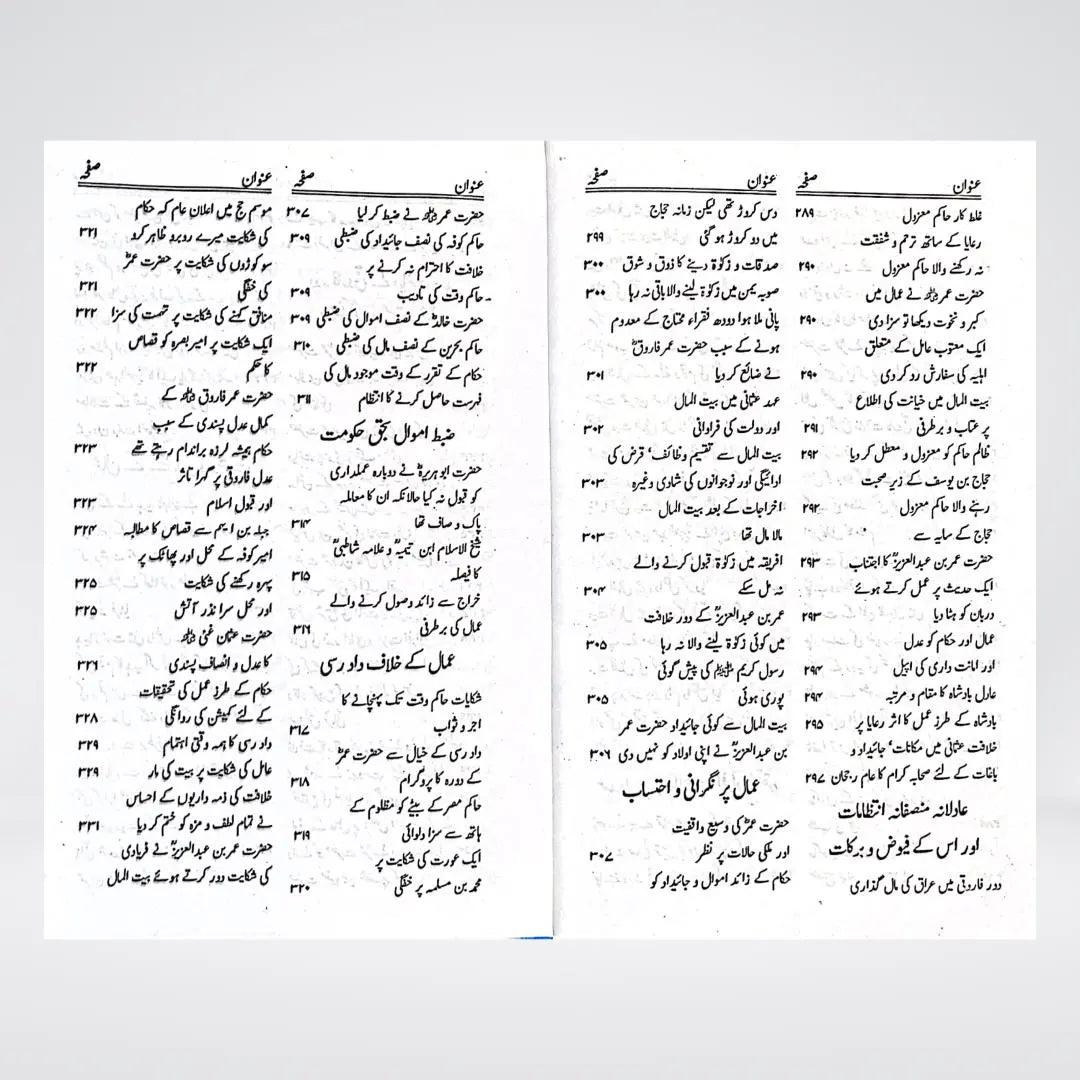 عنوان صفحہ
غلط کار حاکم معزول ۲۸۹
رعایا کے ساتھ ترحم و شفقت
نہ رکھنے والا حاکم معزول ۲۹۰
حضرت عمرؓ نے عمال میں
کبر و نخوت دیکھا تو سزا دی ۲۹۰
ایک معتوب عامل کے متعلق
اہلیہ کی سفارش رد کر دی ۲۹۰
بیت المال میں خیانت کی اطلاع
پر عتاب و برطرفی ۲۹۱
ظالم حاکم کو معزول و معطل کر دیا ۲۹۲
حجاج بن یوسف کے زیر صحبت
رہنے والا حاکم معزول ۲۹۲
حجاج کے سایہ سے
حضرت عمر بن عبدالعزیزؒ کا اجتناب ۲۹۳
ایک حدیث پر عمل کرتے ہوئے
دربان کو ہٹا دیا ۲۹۳
عمال اور حکام کو عدل
اور امانت داری کی اپیل ۲۹۴
عادل بادشاہ کا مقام و مرتبہ ۲۹۴
بادشاہ کے طرز عمل کا اثر رعایا پر ۲۹۵
خلافت عثمانی میں مکانات‘ جائیداد و
باغات کے لئے صحابہ کرام کا عام رجحان ۲۹۷
عادلانہ منصفانہ انتظامات
اور اس کے فیوض و برکات
دور فاروقی میں عراق کی مال گذاری
عنوان صفحہ
دس کروڑ تھی لیکن زمانہ حجاج
میں دو کروڑ ہو گئی ۲۹۹
صدقات و زکوٰۃ دینے کا ذوق و شوق ۳۰۰
صوبہ یمن میں زکوٰۃ لینے والا باقی نہ رہا ۳۰۰
پانی ملا ہوا دودھ فقراء محتاج کے معدوم
ہونے کے سبب حضرت عمر فاروقؓ
نے ضائع کر دیا ۳۰۱
عہد عثمانی میں بیت المال
اور دولت کی فراوانی ۳۰۲
بیت المال سے تقسیم وظائف‘ قرض کی
ادائیگی اور نوجوانوں کی شادی وغیرہ ۳۰۳
اخراجات کے بعد بیت المال
مالا مال تھا ۳۰۳
افریقہ میں زکوٰۃ قبول کرنے والے
نہ مل سکے ۳۰۴
عمر بن عبدالعزیزؒ کے دور خلافت
میں کوئی زکوٰۃ لینے والا نہ رہا ۳۰۵
رسول کریم ﷺ کی پیش گوئی
پوری ہوئی ۳۰۵
بیت المال سے کوئی جائیداد حضرت عمر
بن عبدالعزیزؒ نے اپنی اولاد کو نہیں دی ۳۰۶
عمال پر نگرانی و احتساب
حضرت عمرؓ کی وسیع واقفیت
اور ملکی حالات پر نظر ۳۰۷
حکام کے زائد اموال و جائیداد کو
عنوان صفحہ
حضرت عمرؓ نے ضبط کر لیا ۳۰۷
حاکم کوفہ کی نصف جائیداد کی ضبطی ۳۰۹
خلافت کا احترام نہ کرنے پر
حاکم وقت کی تادیب ۳۰۹
حضرت خالدؓ کے نصف اموال کی ضبطی ۳۰۹
حاکم بحرین کے نصف مال کی ضبطی ۳۱۰
حکام کے تقرر کے وقت موجود مال کی
فہرست حاصل کرنے کا انتظام ۳۱۱
ضبط اموال بحق حکومت
حضرت ابو ہریرہؓ نے دوبارہ عملداری
کو قبول نہ کیا حالانکہ ان کا معاملہ
پاک و صاف تھا ۳۱۴
شیخ الاسلام ابن تیمیہؒ و علامہ شاطبیؒ
کا فیصلہ ۳۱۵
خراج سے زائد وصول کرنے والے
عمال کی برطرفی ۳۱۶
عمال کے خلاف داد رسی
شکایات حاکم وقت تک پہنچانے کا
اجر و ثواب ۳۱۷
داد رسی کے خیال سے حضرت عمرؓ
کے دورہ کا پروگرام ۳۱۸
حاکم مصر کے بیٹے کو مظلوم کے
ہاتھ سے سزا دلوائی ۳۱۹
ایک عورت کی شکایت پر
محمد بن مسلمہ پر خفگی ۳۲۰
عنوان صفحہ
موسم حج میں اعلان عام کہ حکام
کی شکایت میرے روبرو ظاہر کرو ۳۲۱
سو کوڑوں کی شکایت پر حضرت عمرؓ
کی خفگی ۳۲۱
منافق کہنے کی شکایت پر تہمت کی سزا ۳۲۲
ایک شکایت پر امیر بصرہ کو قصاص
کا حکم ۳۲۲
حضرت عمر فاروقؓ کے
کمال عدل پسندی کے سبب
حکام ہمیشہ لرزہ براندام رہتے تھے ۳۲۳
عدل فاروقی پر گہرا تاثر
اور قبول اسلام ۳۲۳
جبلہ بن ایہم سے قصاص کا مطالبہ ۳۲۴
امیر کوفہ کے محل اور پھاٹک پر
پہرہ رکھنے کی شکایت ۳۲۵
اور محل سرا نذر آتش ۳۲۵
حضرت عثمان غنیؓ
کا عدل و انصاف پسندی ۳۲۶
حکام کے طرز عمل کی تحقیقات
کے لئے کمیشن کی روانگی ۳۲۸
داد رسی کا ہمہ وقتی اہتمام ۳۲۹
عامل کی شکایت پر بیت کی مار ۳۲۹
خلافت کی ذمہ داریوں کے احساس
نے تمام لطف و مزہ کو ختم کر دیا ۳۳۱
حضرت عمر بن عبدالعزیزؒ نے فریادی
کی شکایت دور کرتے ہوئے بیت المال